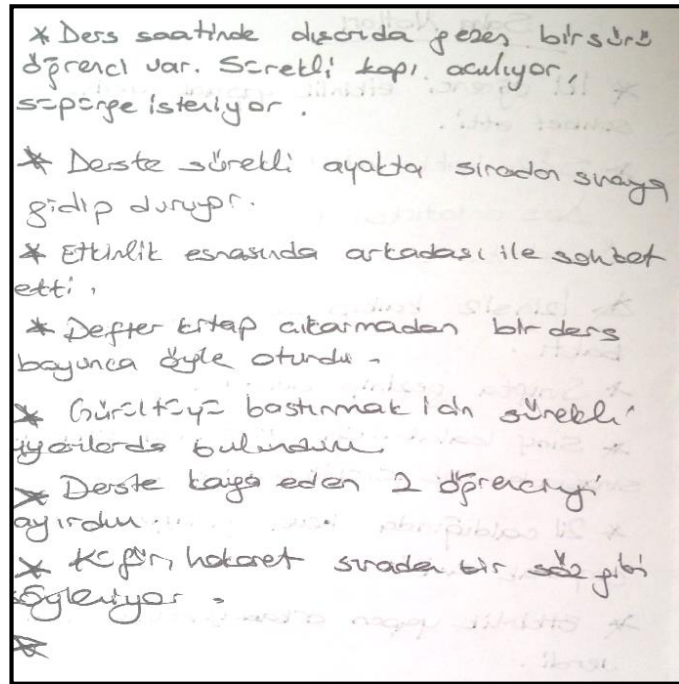 * Ders saatinde dışarıda gezen bir sürü
öğrenci var. Sürekli kapı açılıyor,
süpürge isteniyor.
* Derste sürekli ayakta sıradan sıraya
gidip duruyor.
* Etkinlik esnasında arkadaşı ile sohbet
etti.
* Defter kitap çıkarmadan bir ders
boyunca öyle oturdu.
* Gürültüyü bastırmak için sürekli
uyarılarda bulundum.
* Derste kavga eden 2 öğrenciyi
ayırdım.
* Küfür, hakaret sıradan bir söz gibi
söyleniyor.
*